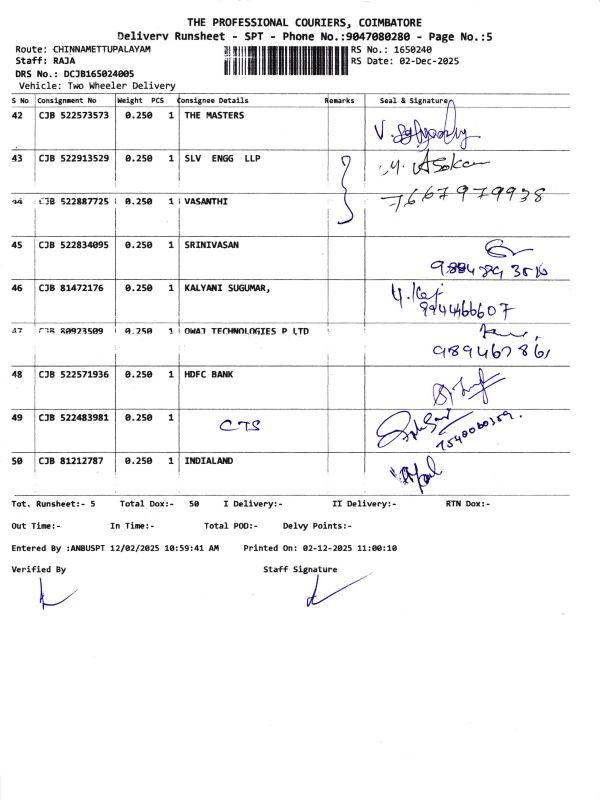 THE PROFESSIONAL COURIERS, COIMBATORE
Delivery Runsheet - SPT - Phone No.:9047080280 - Page No.:5
Route: CHINNAMETTUPALAYAM RS No.: 1650240
Staff: RAJA RS Date: 02-Dec-2025
DRS No.: DCJB165024005
Vehicle: Two Wheeler Delivery
S No Consignment No Weight PCS Consignee Details Remarks Seal & Signature
42 CJB 522573573 0.250 1 THE MASTERS
43 CJB 522913529 0.250 1 SLV ENGG LLP M. Asokan
44 CJB 522887725 0.250 1 VASANTHI 7667979938
45 CJB 522834095 0.250 1 SRINIVASAN
46 CJB 81472176 0.250 1 KALYANI SUGUMAR,
9944466607
47 CJB 80923509 0.250 1 OWAJ TECHNOLOGIES P LTD
989467861
48 CJB 522571936 0.250 1 HDFC BANK
49 CJB 522483981 0.250 1 CTS
50 CJB 81212787 0.250 1 INDIALAND
Tot. Runsheet:- 5 Total Dox:- 50 I Delivery:- II Delivery:- RTN Dox:-
Out Time:- In Time:- Total POD:- Delvy Points:-
Entered By :ANBUSPT 12/02/2025 10:59:41 AM Printed On: 02-12-2025 11:00:10
Verified By Staff Signature